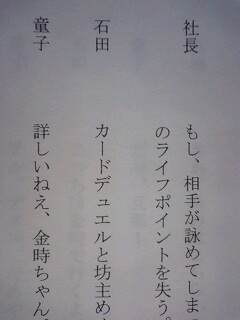 社長　もし、相手が詠めてしま
のライフポイントを失う。
石田　カードデュエルと坊主め
童子　詳しいねえ、金時ちゃん